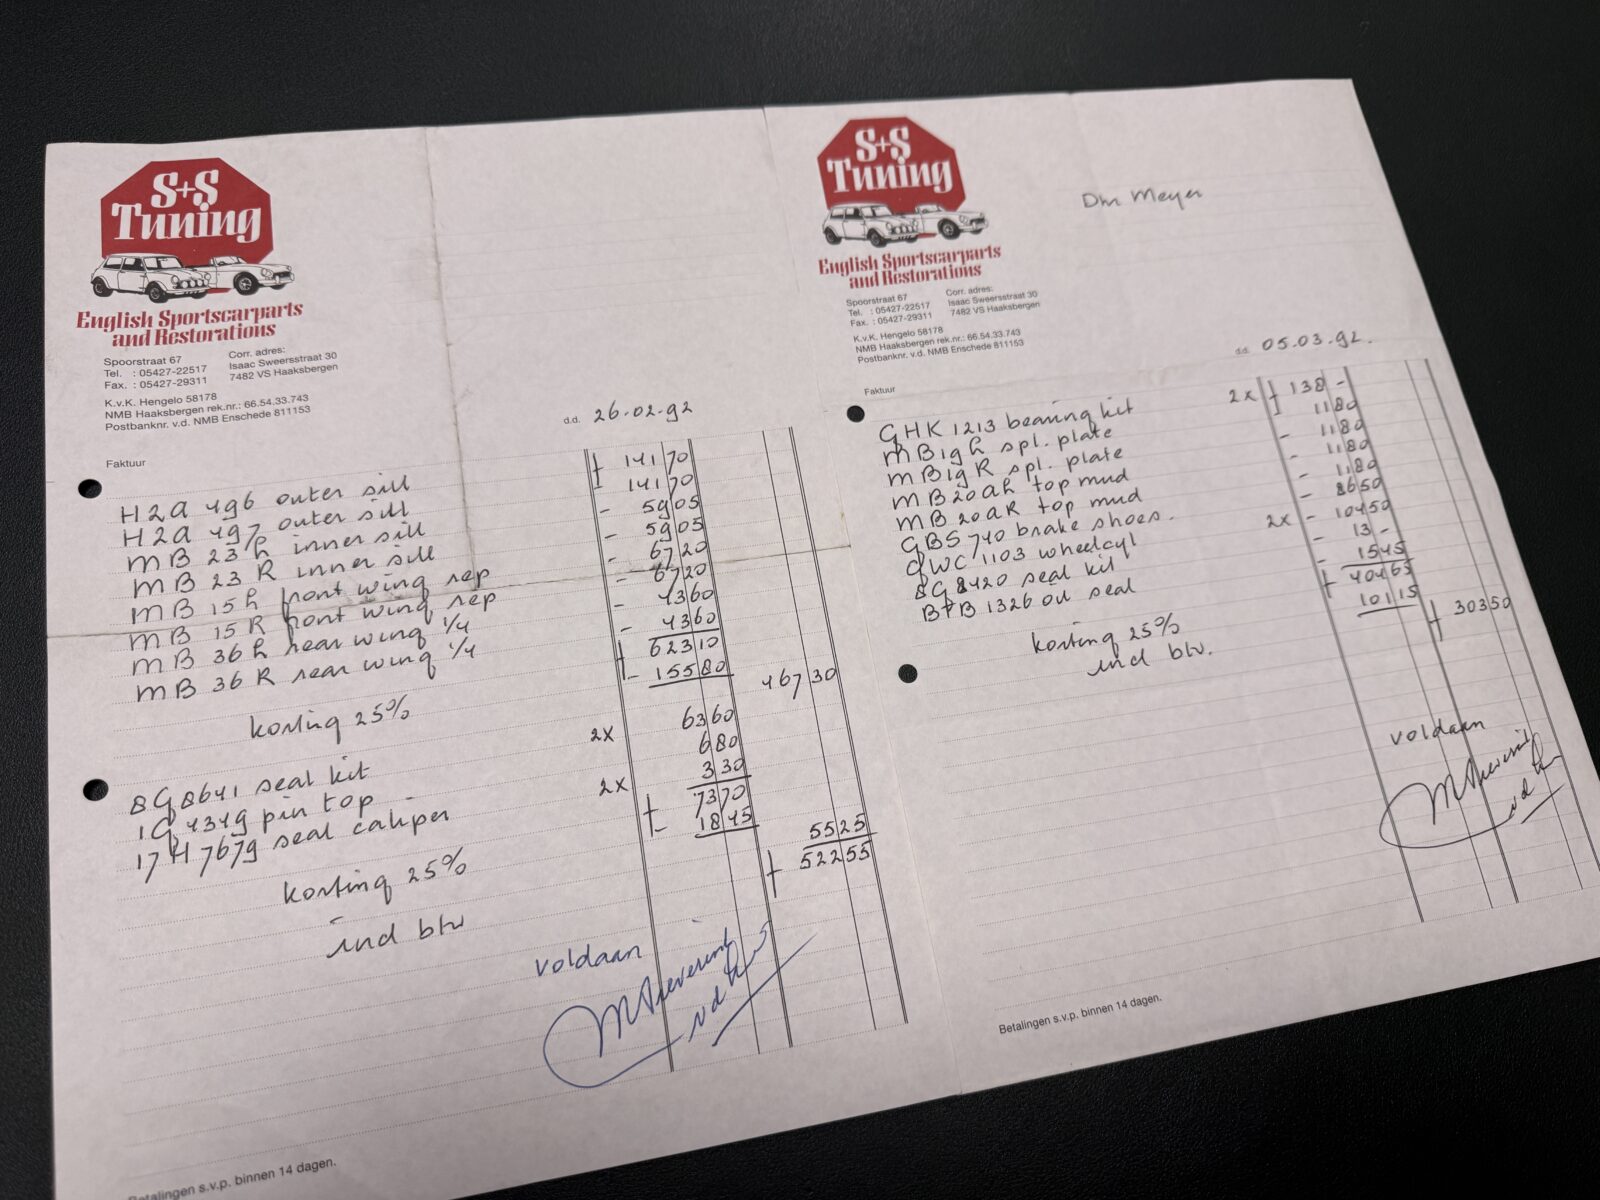 S+S
Tuning
English Sportscarparts
and Restorations
Spoorstraat 67
Tel. : 05427-22517
Fax. : 05427-29311
Corr. adres:
Isaac Sweersstraat 30
7482 VS Haaksbergen
K.v.K. Hengelo 58178
NMB Haaksbergen rek.nr.: 66.54.33.743
Postbanknr. v.d. NMB Enschede 811153
d.d. 26.02.92
Faktuur
H2A 496 outer sill 141 70
H2A 497 outer sill 141 70
MB 23 L inner sill - 59 05
MB 23 R inner sill - 59 05
MB 15 L front wing rep - 67 20
MB 15 R front wing rep - 67 20
MB 36 L rear wing 1/4 - 43 60
MB 36 R rear wing 1/4 - 43 60
623 10
korting 25% - 155 80 467 30
8G8641 seal kit 2x 63 60
1G4349 pin top 6 80
17H7679 seal caliper 2x 3 30
73 70
korting 25% - 18 45 55 25
incl btw 522 55
voldaan
Betalingen s.v.p. binnen 14 dagen.
S+S
Tuning
English Sportscarparts
and Restorations
Spoorstraat 67
Tel. : 05427-22517
Fax. : 05427-29311
Corr. adres:
Isaac Sweersstraat 30
7482 VS Haaksbergen
K.v.K. Hengelo 58178
NMB Haaksbergen rek.nr.: 66.54.33.743
Postbanknr. v.d. NMB Enschede 811153
Dhr Meyer
d.d. 05.03.92.
Faktuur
GHK 1213 bearing kit 2x 138 -
MB19L spl. plate 11 80
MB19R spl. plate - 11 80
MB20AL top mud - 11 80
MB20AR top mud - 11 80
GBS740 brake shoes. - 86 50
GWC1103 wheelcyl 2x - 104 50
8G8420 seal kit - 13 -
BTB1326 oil seal - 15 45
404 65
korting 25% 101 15 303 50
incl btw.
voldaan
Betalingen s.v.p. binnen 14 dagen.